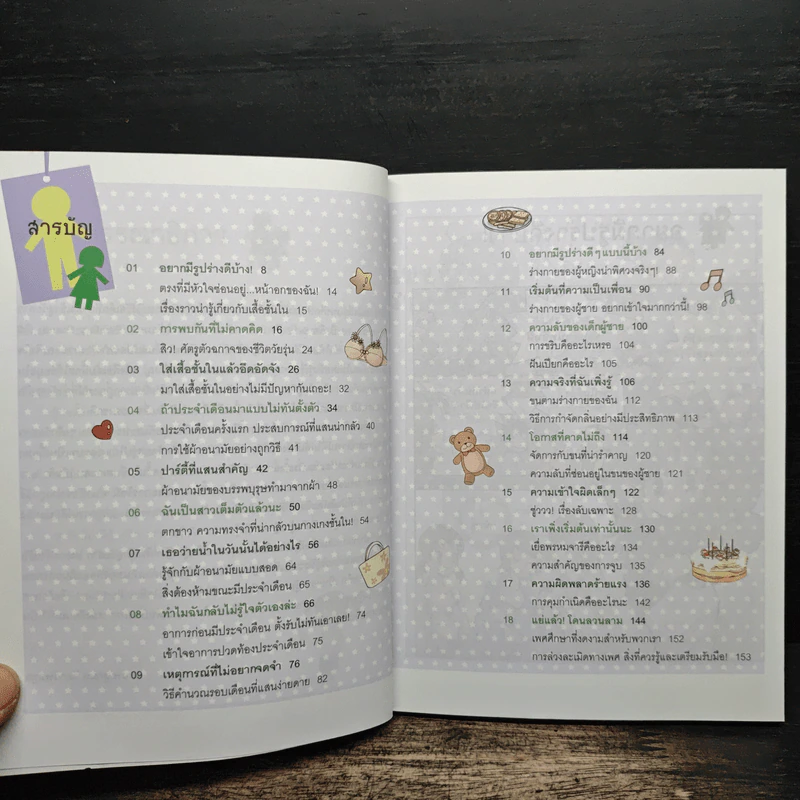 สารบัญ
01 อยากมีรูปร่างดีบ้าง! 8
ตรงที่มีหัวใจซ่อนอยู่...หน้าอกของฉัน! 14
เรื่องราวน่ารู้เกี่ยวกับเสื้อชั้นใน 15
02 การพบกันที่ไม่คาดคิด 16
สิว! ศัตรูตัวฉกาจของชีวิตวัยรุ่น 24
03 ใส่เสื้อชั้นในแล้วอึดอัดจัง 26
มาใส่เสื้อชั้นในอย่างไม่มีปัญหากันเถอะ! 32
04 ถ้าประจำเดือนมาแบบไม่ทันตั้งตัว 34
ประจำเดือนครั้งแรก ประสบการณ์ที่แสนน่ากลัว 40
การใช้ผ้าอนามัยอย่างถูกวิธี 41
05 ปาร์ตี้ที่แสนสำคัญ 42
ผ้าอนามัยของบรรพบุรุษทำมาจากผ้า 48
06 ฉันเป็นสาวเต็มตัวแล้วนะ 50
ตกขาว ความทรงจำที่น่ากลัวบนกางเกงชั้นใน! 54
07 เธอว่ายน้ำในวันนั้นได้อย่างไร 56
รู้จักกับผ้าอนามัยแบบสอด 64
สิ่งต้องห้ามขณะมีประจำเดือน 65
08 ทำไมฉันกลับไม่รู้ใจตัวเองล่ะ 66
อาการก่อนมีประจำเดือน ตั้งรับไม่ทันเอาเลย! 74
เข้าใจอาการปวดท้องประจำเดือน 75
09 เหตุการณ์ที่ไม่อยากจดจำ 76
วิธีคำนวณรอบเดือนที่แสนง่ายดาย 82
10 อยากมีรูปร่างดีๆ แบบนี้บ้าง 84
ร่างกายของผู้หญิงน่าพิศวงจริงๆ! 88
11 เริ่มต้นที่ความเป็นเพื่อน 90
ร่างกายของผู้ชาย อยากเข้าใจมากกว่านี้! 98
12 ความลับของเด็กผู้ชาย 100
การขริบคืออะไรเหรอ 104
ฝันเปียกคืออะไร 105
13 ความจริงที่ฉันเพิ่งรู้ 106
ขนตามร่างกายของฉัน 112
วิธีการกำจัดกลิ่นอย่างมีประสิทธิภาพ 113
14 โอกาสที่คาดไม่ถึง 114
จัดการกับขนที่น่ารำคาญ 120
ความลับที่ซ่อนอยู่ในขนของผู้ชาย 121
15 ความเข้าใจผิดเล็กๆ 122
ชู่ววว! เรื่องลับเฉพาะ 128
16 เราเพิ่งเริ่มต้นเท่านั้นนะ 130
เยื่อพรหมจารีคืออะไร 134
ความสำคัญของการจูบ 135
17 ความผิดพลาดร้ายแรง 136
การคุมกำเนิดคืออะไรนะ 142
18 แย่แล้ว! โดนลวนลาม 144
เพศศึกษาที่งดงามสำหรับพวกเรา 152
การล่วงละเมิดทางเพศ สิ่งที่ควรรู้และเตรียมรับมือ! 153